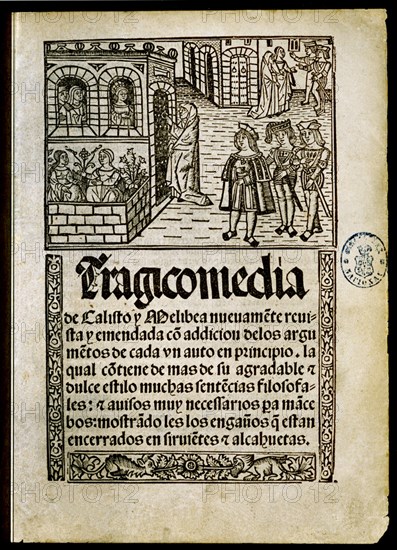 Tragicomedia
de Calisto y Melibea nueuamēte reui
sta y emendada cō addicion delos argu
mētos de cada vn auto en principio. la
qual cōtiene de mas de su agradable ⁊
dulce estilo muchas sentēcias filosofa-
les: ⁊ auisos muy necessarios ꝑa māce
bos: mostrādo les los engaños q̄ estan
encerrados en siruiētes ⁊ alcahuetas.
NACIONAL
PHOTO12